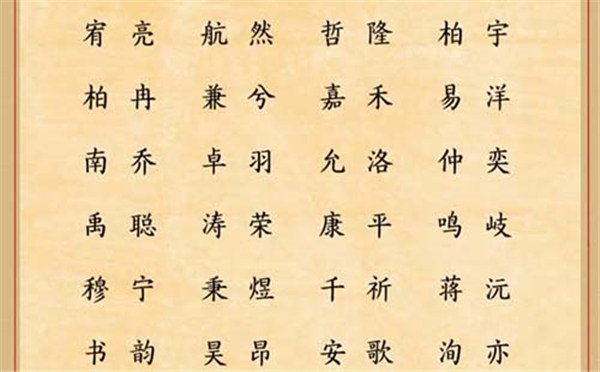 宥亮 航然 哲隆 柏宇
柏冉 兼兮 嘉禾 易洋
南乔 卓羽 允洛 仲奕
禹聪 涛荣 康平 鸣岐
穆宁 秉煜 千祈 蒋沅
书韵 昊昂 安歌 洵亦